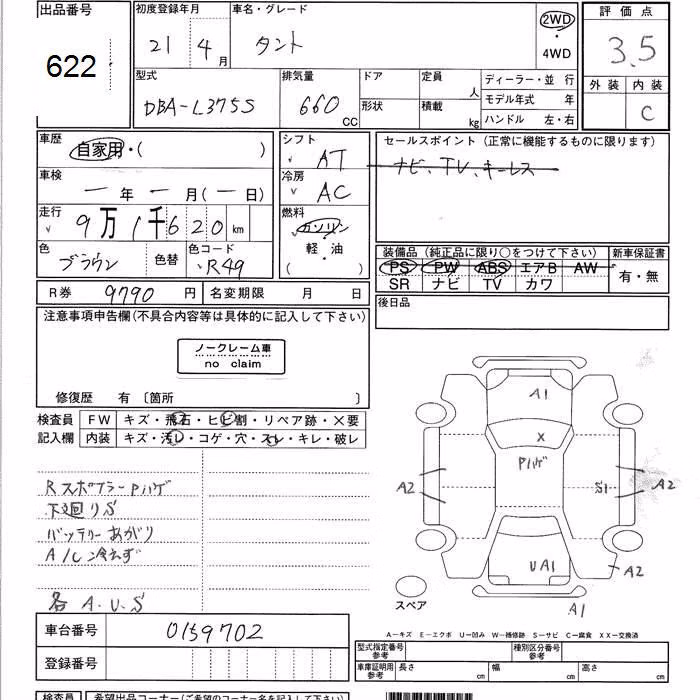 出品番号 初度登録年月 車名・グレード 2WD 評価点
622 21 4月 タント ・ 3.5
4WD
外装 内装
型式 排気量 ドア 定員 人 ディーラー・並 行
DBA-L375S 660 CC 形状 積載 kg モデル年式 年 C
ハンドル 左・右
車歴 シフト セールスポイント (正常に機能するものに限ります)
自家用・( ) AT ナビ、TV、キーレス
車検 冷房
一年一月(一日) AC
走行 燃料
9万1千620km ガソリン
色 色替 色コード 軽・油 装備品 (純正品に限り○をつけて下さい) 新車保証書
ブラウン R49 ( ) PS PW ABS エアB AW 有・無
SR ナビ TV カワ
R券 9790円 名変期限 月 日 後日品
注意事項申告欄(不具合内容等は具体的に記入して下さい)
ノークレーム車
no claim
修復歴 有 〔箇所 〕
検査員 FW キズ・飛石・ヒビ割・リペア跡・×要
記入欄 内装 キズ・汚レ・コゲ・穴・スレ・キレ・破レ
A1
X
Pハゲ
A2 S1 A2
UA1 A2
A1
スペア
Rスポイラー Pハゲ
下廻りS
バッテリーあがり
A/C冷えず
各 A.U.S
車台番号 0159702
登録番号
A-キズ E-エクボ U-凹み W-補修跡 S-サビ C-腐食 XX-交換済
型式指定番号 参考 種別区分番号 参考
車庫証明用 参考 長さ cm 幅 cm 高さ cm
検査員 希望出品コーナー(ご希望のコーナー名を記入して下さい)